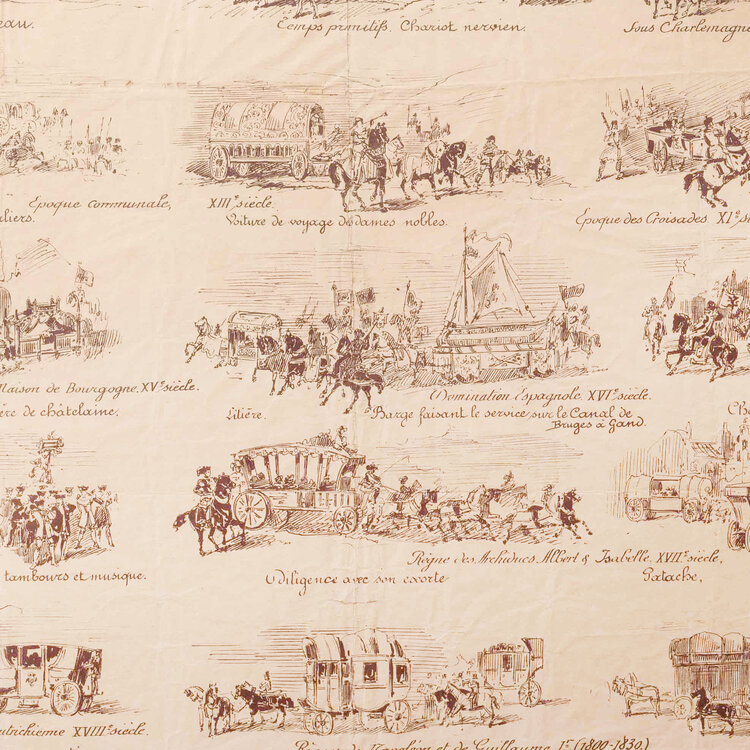 eau.
Temps primitifs. Chariot nervien.
Sous Charlemagne
Epoque communale, XIIIe siècle.
liers.
Voiture de voyage des dames nobles.
Epoque des Croisades. XIe si
Maison de Bourgogne. XVe siècle.
ère de châtelaine.
Domination Espagnole XVIe siècle.
Litière.
Barge faisant le service sur le Canal de
Bruges à Gand.
Ch
Règne des Archiducs Albert & Isabelle. XVIIe siècle,
tambours et musique.
diligence avec son escorte
Patache,
utrichienne XVIIIe siècle.
Règne de Napoléon et de Guillaume 1er (1800-1830)